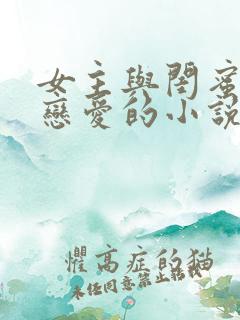 女主與閨蜜
戀愛的小說
懼高症的貓
未任同意禁止轉載